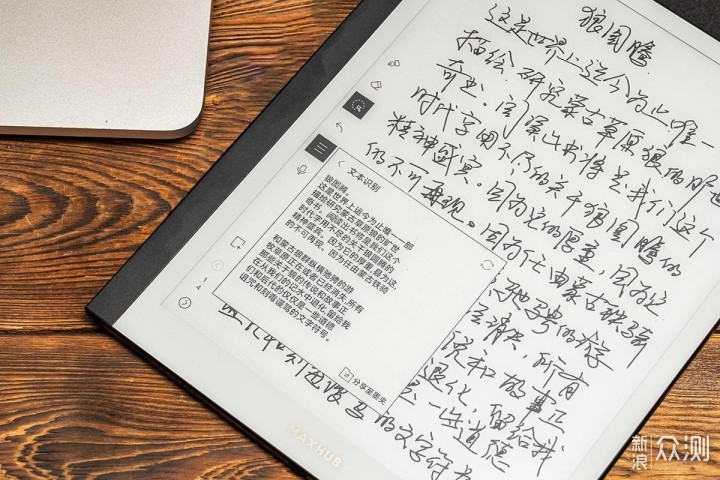 狼图腾
这是世界上迄今为止唯一
描绘、研究蒙古草原狼的旷世
奇书。阅读此书将是我们这个
时代享用不尽的关于狼图腾的
精神盛宴。因为它的厚重,因为它
的不可再现。因为任由蒙古铁骑
驰骋的游
消失,所有
和故事正
退化,留给我
一些道德
的文字符号
文本识别
狼图腾。
这是世界上运今为止唯一一部
描绘研究蒙古草原狼的旷世
奇书,阅读出书将是我们这个
时代字用不尽的关于狼圆腾的
精神盛宾。因为它的厚重,最为这
的不可再现。因为任由蒙古铁狮
和蒙古狼群纵横驰骋的游
牧草原正在或者已经消失,所有
那些关于狼的传说和故事正
在从我们的记水中退化,留给我
们和后代的仅仅是一些道德
诅咒和刻毒谩骂的文字符号。
分享至墨夹
MAXHUB
新浪 众测